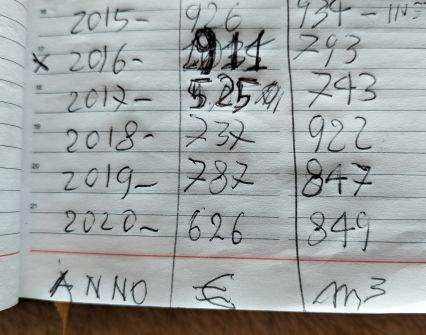 2015- 926 934 -
x 2016- 1911 793
2017- 525 743
2018- 737 922
2019- 787 847
2020- 626 849
ANNO € m3